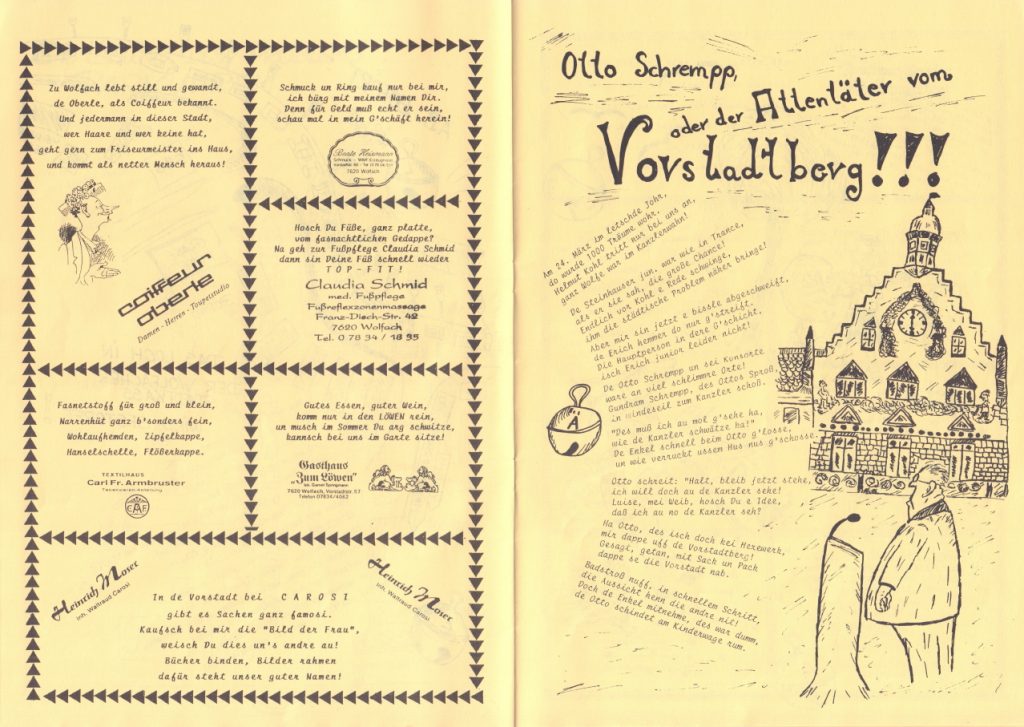 Zu Wolfach lebt still und gewandt,
de Oberle, als Coiffeur bekannt.
Und jedermann in dieser Stadt,
wer Haare und wer keine hat,
geht gern zum Friseurmeister ins Haus,
und kommt als netter Mensch heraus!
coiffeur
oberle
Damen - Herren - Toupetstudio
Schmuck un Ring kauf nur bei mir,
ich bürg mit meinem Namen Dir.
Denn für Geld muß echt er sein,
schau mal in mein G'schäft herein!
7620 Wolfach
Hosch Du Füße, ganz platte,
vom fasnachtlichen Gedappe?
Na geh zur Fußpflege Claudia Schmid
dann sin Deine Füß schnell wieder
T O P - F I T !
Claudia Schmid
med. Fußpflege
Fußreflexzonenmassage
Franz-Disch-Str. 42
7620 Wolfach
Tel. 0 78 34 / 18 35
Fasnetstoff für groß und klein,
Narrenhüt ganz b'sonders fein,
Wohlaufhemden, Zipfelkappe,
Hanselschelle, Flößerkappe.
TEXTILHAUS
Carl Fr. Armbruster
CAF
Gutes Essen, guter Wein,
komm nur in den LÖWEN rein,
un musch im Sommer Du arg schwitze,
kannsch bei uns im Garte sitze!
Gasthaus
"Zum Löwen"
7620 Wolfach, Vorstadtstr. 57
Telefon 07834/4062
Heinrich Moser
Inh. Waltraud Carosi
Heinrich Moser
Inh. Waltraud Carosi
In de Vorstadt bei C A R O S I
gibt es Sachen ganz famosi.
Kaufsch bei mir die "Bild der Frau",
weisch Du dies un's andre au!
Bücher binden, Bilder rahmen
dafür steht unser guter Namen!
Otto Schrempp,
oder der Attentäter vom
Vorstadtberg!!!
Am 24. März im letschde Johr,
do wurde 1000 Träume wohr.
Helmut Kohl tritt nur bei uns an,
ganz Wolfe war im Kanzlerwahn!
De Steinhauser jun. war wie in Trance,
als er sie sah, die große Chance!
Endlich vor Kohl e Rede schwinge,
ihm die städtische Problem näher bringe!
Aber mir sin jetzt e bissle abgeschweift,
de Erich hemmer do nur g'streift.
Die Hauptperson in dere G'schicht,
isch Erich junior leider nicht!
De Otto Schrempp un sei Konsorte
ware an viel schlimmre Orte!
Gundram Schrempp, des Ottos Sproß,
in Windeseil zum Kanzler schoß.
"Des muß ich au mol g'sehe ha,
wie de Kanzler schwätze ha!"
De Enkel schnell beim Otto g'losse,
un wie verruckt ussem Hus nus g'schosse.
Otto schreit: "Halt, bleib jetzt stehe,
ich will doch au de Kanzler sehe!
Luise, mei Weib, hosch Du e Idee,
daß ich au no de Kanzler seh?
Ha Otto, des isch doch kei Hexewerk,
mir dappe uff de Vorstadtberg!
Gesagt, getan, mit Sach un Pack
dappe se die Vorstadt nab.
Badstroß nuff, in schnellem Schritt,
die Aussicht henn die andre nit!
Doch de Enkel mitnehme, des war dumm,
de Otto schindet am Kinderwage rum.
A